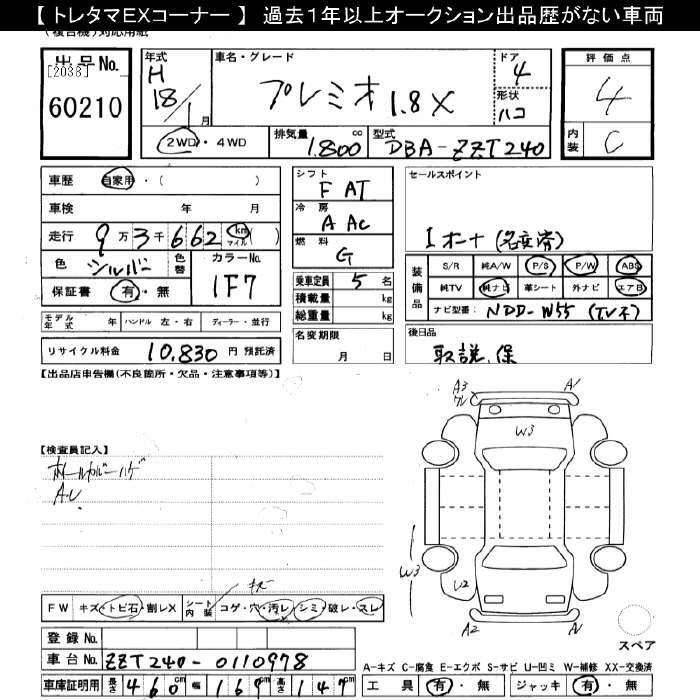 【 トレタマEXコーナー 】 過去1年以上オークション出品歴がない車両
(複合機)対応用紙
出品No.
[2038]
60210
年式
H
18/1月
車名・グレード
プレミオ 1.8X
ドア
4
形状
ハコ
評価点
4
内装
C
2WD・4WD
排気量 1.800 cc
型式 DBA-ZZT240
車歴 自家用・( )
車検 年 月
走行 9万3千662 km マイル ( )
色 シルバー 色替 カラーNo. 1F7
保証書 有・無
モデル年式 年 ハンドル 左・右 ディーラー・並行
リサイクル料金 10,830 円 預託済
シフト F AT
冷房 A AC
燃料 G
乗車定員 5 名
積載量 kg
総重量 kg
名変期限
月 日
セールスポイント
1オーナー(名変済)
装備品
S/R 純A/W P/S P/W ABS
純TV 純ナビ 革シート 外ナビ エアB
ナビ型番: NDDN-W55 (TV不)
後日品
取説、保
【出品店申告欄(不良箇所・欠品・注意事項等)】
【検査員記入】
ホイールカバーハゲ
A.U
A3
A1
W3
W3
U2
A2
A1
スペア
FW キズ・トビ石・割レX シート内装 コゲ・穴・汚レ・シミ・破レ・スレ
登録No.
車台No. ZZT240-0110978
車庫証明用 長さ 460 cm 幅 169 cm 高さ 147 cm
A-キズ C-腐食 E-エクボ S-サビ U-凹ミ W-補修 XX-交換済
工具 有・無 ジャッキ 有・無